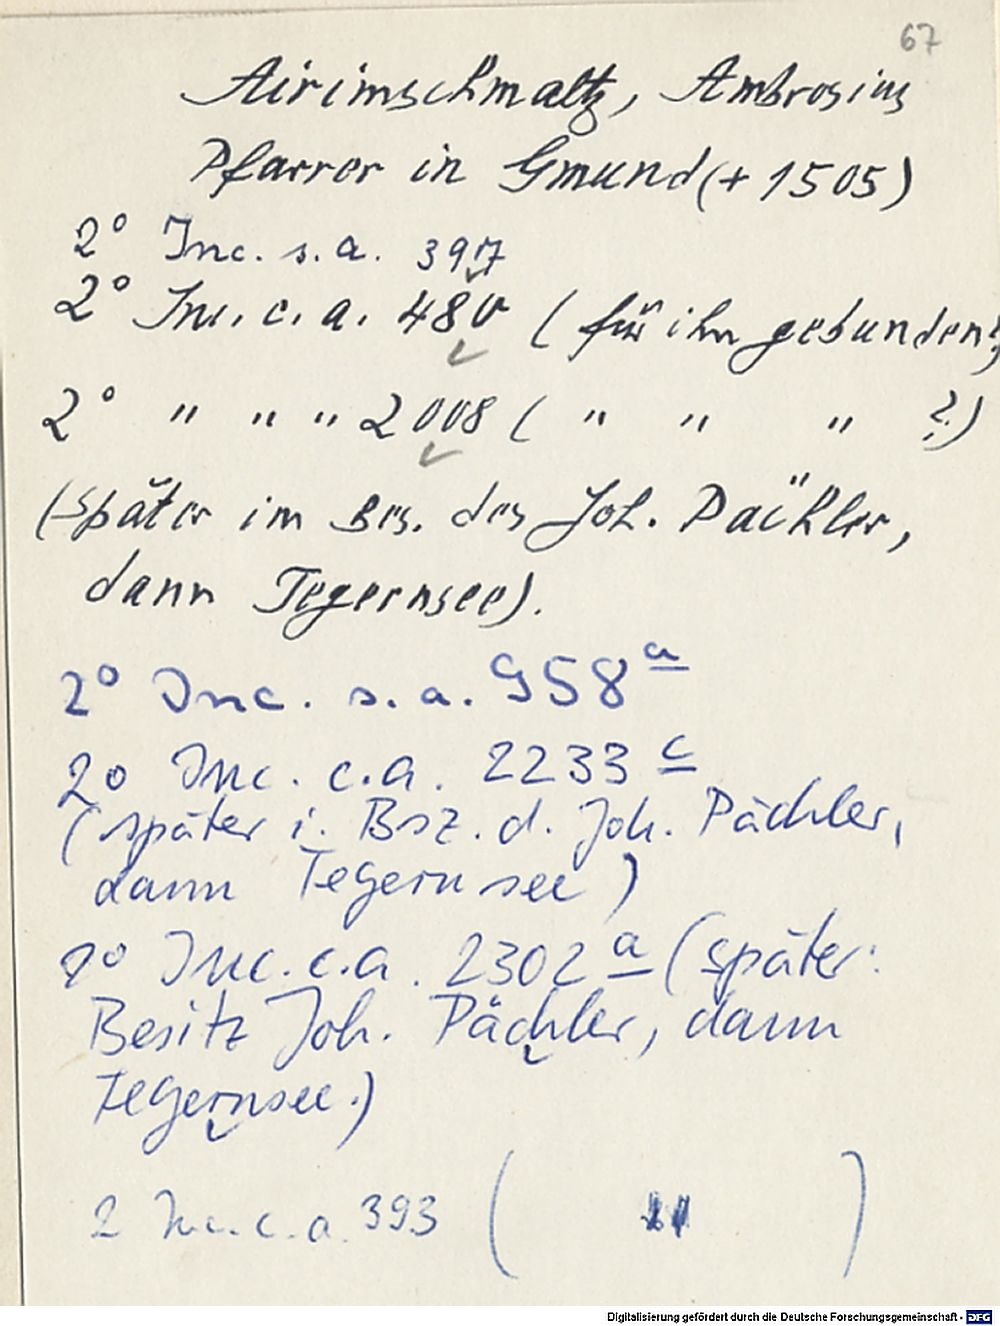 67
Airimschmaltz, Ambrosius
Pfarrer in Gmund (+ 1505)
2° Inc. s.a. 397
2° Inc. c.a. 480 (für ihn gebunden?)
2° " " " 2008 ( " " " ?)
(später im Bes. des Joh. Pächler,
dann Tegernsee).
2° Inc. s.a. 958 a
2° Inc. c.a. 2233 c
(später i. Bsz. d. Joh. Pächler,
dann Tegernsee)
2° Inc. c.a. 2302 a (später:
Besitz Joh. Pächler, dann
Tegernsee.)
2 Inc. c.a. 393 ( " )
Digitalisierung gefördert durch die Deutsche Forschungsgemeinschaft - DFG